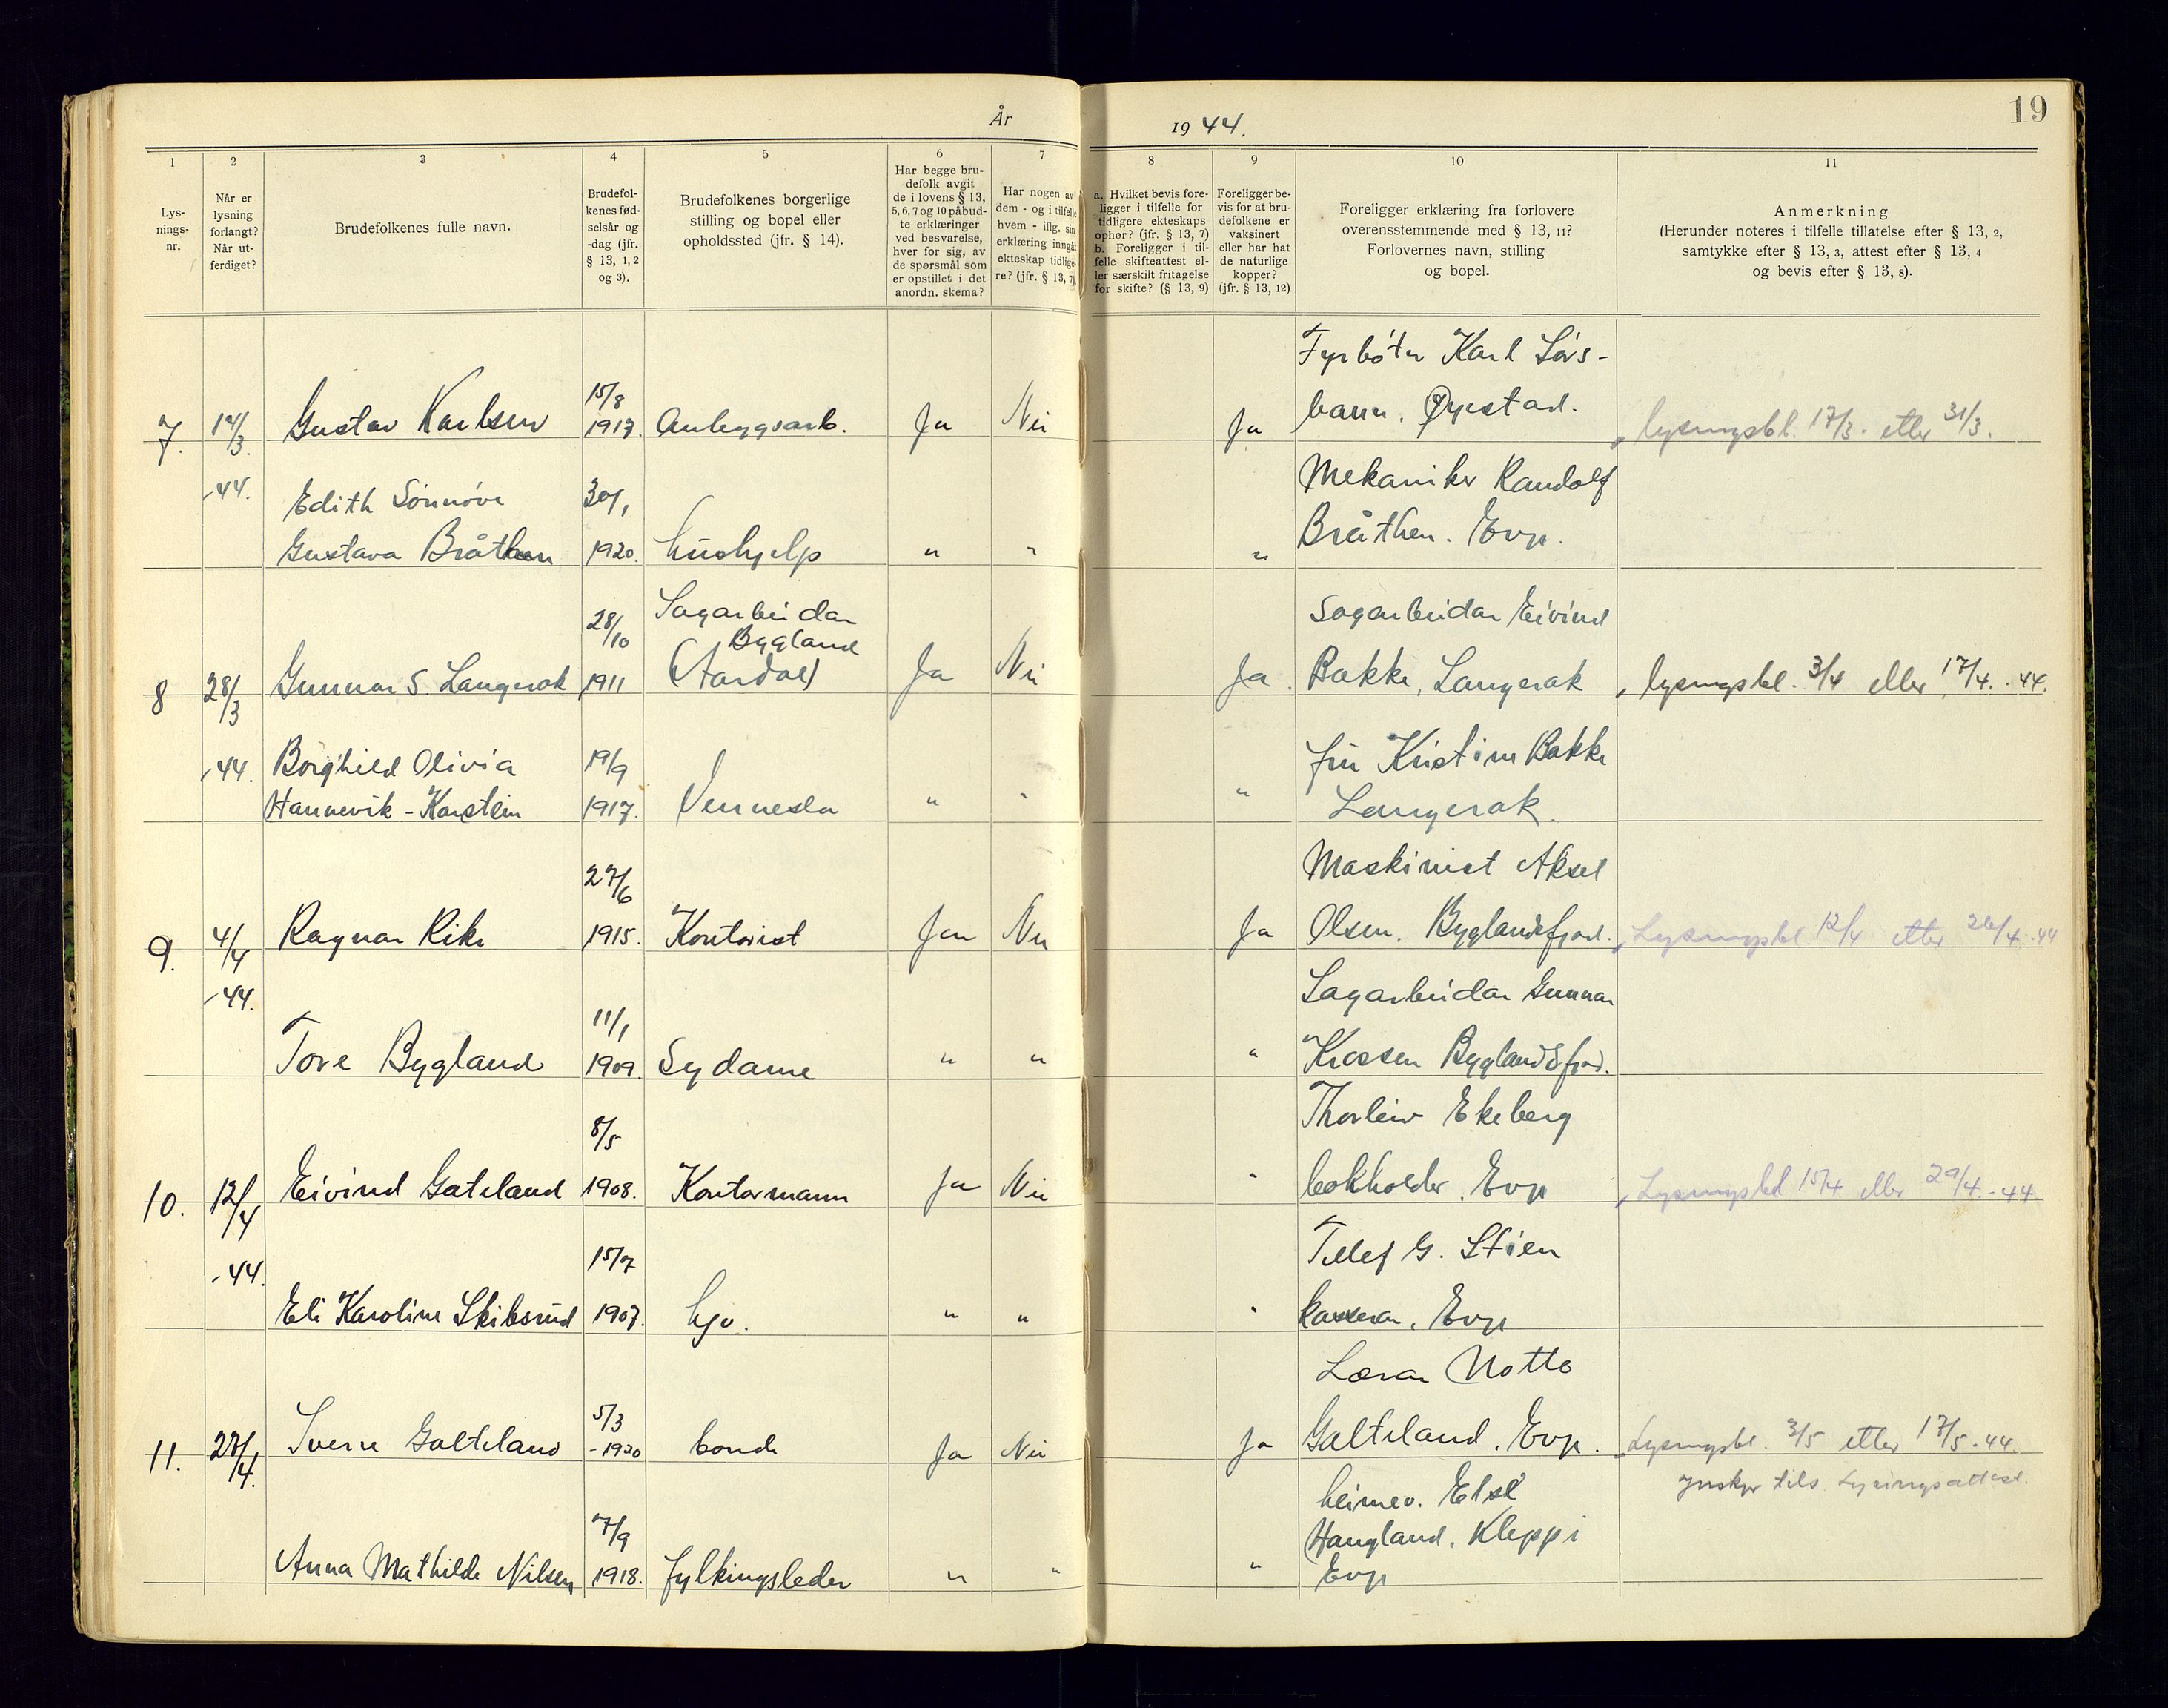 År
1944.
19
1
2
3
4
5
6
7
8
9
10
11
Lys-
nings-
nr.
Når er
lysning
forlangt?
Når ut-
ferdiget?
Brudefolkenes fulle navn.
Brudefol-
kenes fød-
selsår og
-dag (jfr.
§ 13, 1, 2
og 3).
Brudefolkenes borgerlige
stilling og bopel eller
opholdssted (jfr. § 14).
Har begge bru-
defolk avgit
de i lovens § 13,
5, 6, 7 og 10 påbud-
te erklæringer
ved besvarelse,
hver for sig, av
de spørsmål som
er opstillet i det
anordn. skema?
Har nogen av
dem - og i tilfelle
hvem - iflg. sin
erklæring inngåt
ekteskap tidlige-
re? (jfr. § 13, 7)
a. Hvilket bevis fore-
ligger i tilfelle for
tidligere ekteskaps
ophør? (jfr. § 13, 7)
b. Foreligger i til-
felle skifteattest el-
ler særskilt fritagelse
for skifte? (§ 13, 9)
Foreligger be-
vis for at bru-
defolkene er
vaksinert
eller har hat
de naturlige
kopper?
(jfr. § 13, 12)
Foreligger erklæring fra forlovere
overensstemmende med § 13, 11?
Forlovernes navn, stilling
og bopel.
Anmerkning
(Herunder noteres i tilfelle tillatelse efter § 13, 2,
samtykke efter § 13, 3, attest efter § 13, 4
og bevis efter § 13, 8).
Fyrbøter Karl Løvs-
15/8
7. 14/3 Gustav Karlsen 1917. Anleggsarb. Ja Nei Ja bann. Øyestad. lysingsbl. 17/3. etter 31/3.
-44. Edith Sønnøve 30/1 Mekaniker Randolf
Gustava Bråthen 1920. hushjelp " " " Bråthen. Evje.
28/10 Sagarbeidar Sagarbeidar Eivind
Bygland
8 28/3 Gunnar S. Langerak 1911 (Aardal) Ja Nei Ja Bakke, Langerak lysingsbl. 3/4 eller 17/4.-44.
-44. Borghild Olivia 19/9 fru Kristine Bakke
Hannevik-Karstein 1917. Vennesla " " " Langerak.
27/6 Maskinist Aksel
9. 4/4 Ragnar Rike 1915. Kontorist Ja Nei Ja Olsen. Byglandsfjord. Lysingsbl 12/4 etter 26/4.-44
-44. 11/1 Sagarbeidar Gunnar
Tove Bygland 1909. Sydame " " " Krossen Byglandsfjord.
8/5 Thorleiv Ekeberg
10. 12/4 Eivind Gateland 1908. Kontormann Ja Nei " bokholder. Evje Lysingsbl 15/4 eller 29/4.-44.
-44. 15/7 Tellef G. Støen
Eli Karoline Skibsrud 1907. hjv. " " " kasserar, Evje
Lærar Notto
5/3
11. 27/4. Sverre Galteland -1920 bonde Ja Nei Ja Galteland. Evje. Lysingsbl. 3/5 etter 17/5-44.
heimev. Else ynskjer tils. Lysingsattest.
7/9 Haugland. Kleppi
Anna Mathilde Nilsen 1918. fylkingsleder " " " Evje